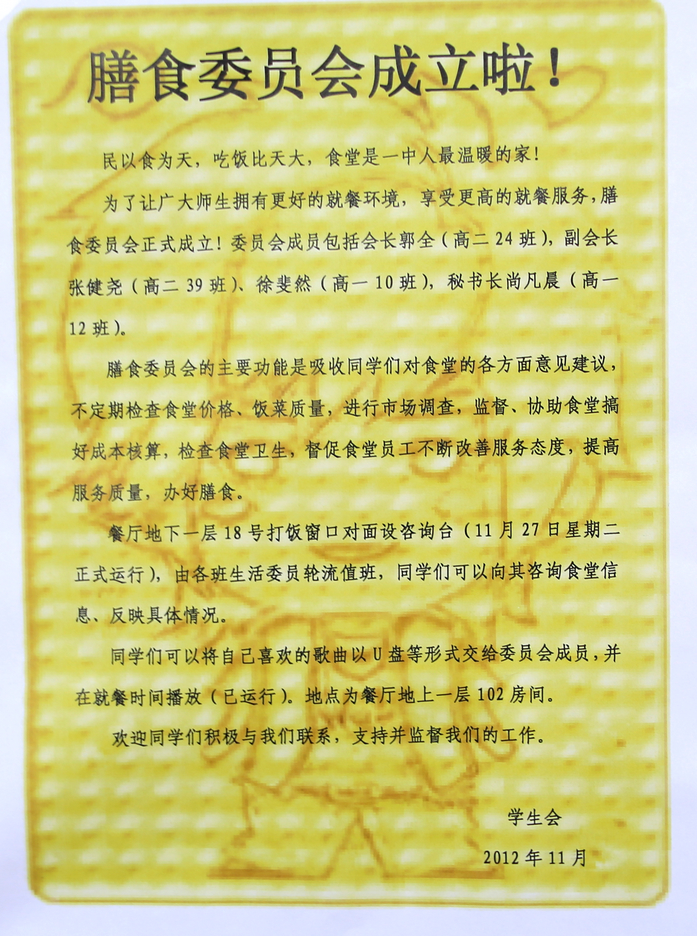 膳食委员会成立啦！
民以食为天，吃饭比天大，食堂是一中人最温暖的家！
为了让广大师生拥有更好的就餐环境，享受更高的就餐服务，膳
食委员会正式成立！委员会成员包括会长郭全（高二 24 班），副会长
张健尧（高二 39 班）、徐斐然（高一 10 班），秘书长尚凡晨（高一
12 班）。
膳食委员会的主要功能是吸收同学们对食堂的各方面意见建议，
不定期检查食堂价格、饭菜质量，进行市场调查，监督、协助食堂搞
好成本核算，检查食堂卫生，督促食堂员工不断改善服务态度，提高
服务质量，办好膳食。
餐厅地下一层 18 号打饭窗口对面设咨询台（11 月 27 日星期二
正式运行），由各班生活委员轮流值班，同学们可以向其咨询食堂信
息、反映具体情况。
同学们可以将自己喜欢的歌曲以 U 盘等形式交给委员会成员，并
在就餐时间播放（已运行）。地点为餐厅地上一层 102 房间。
欢迎同学们积极与我们联系，支持并监督我们的工作。
学生会
2012 年 11 月